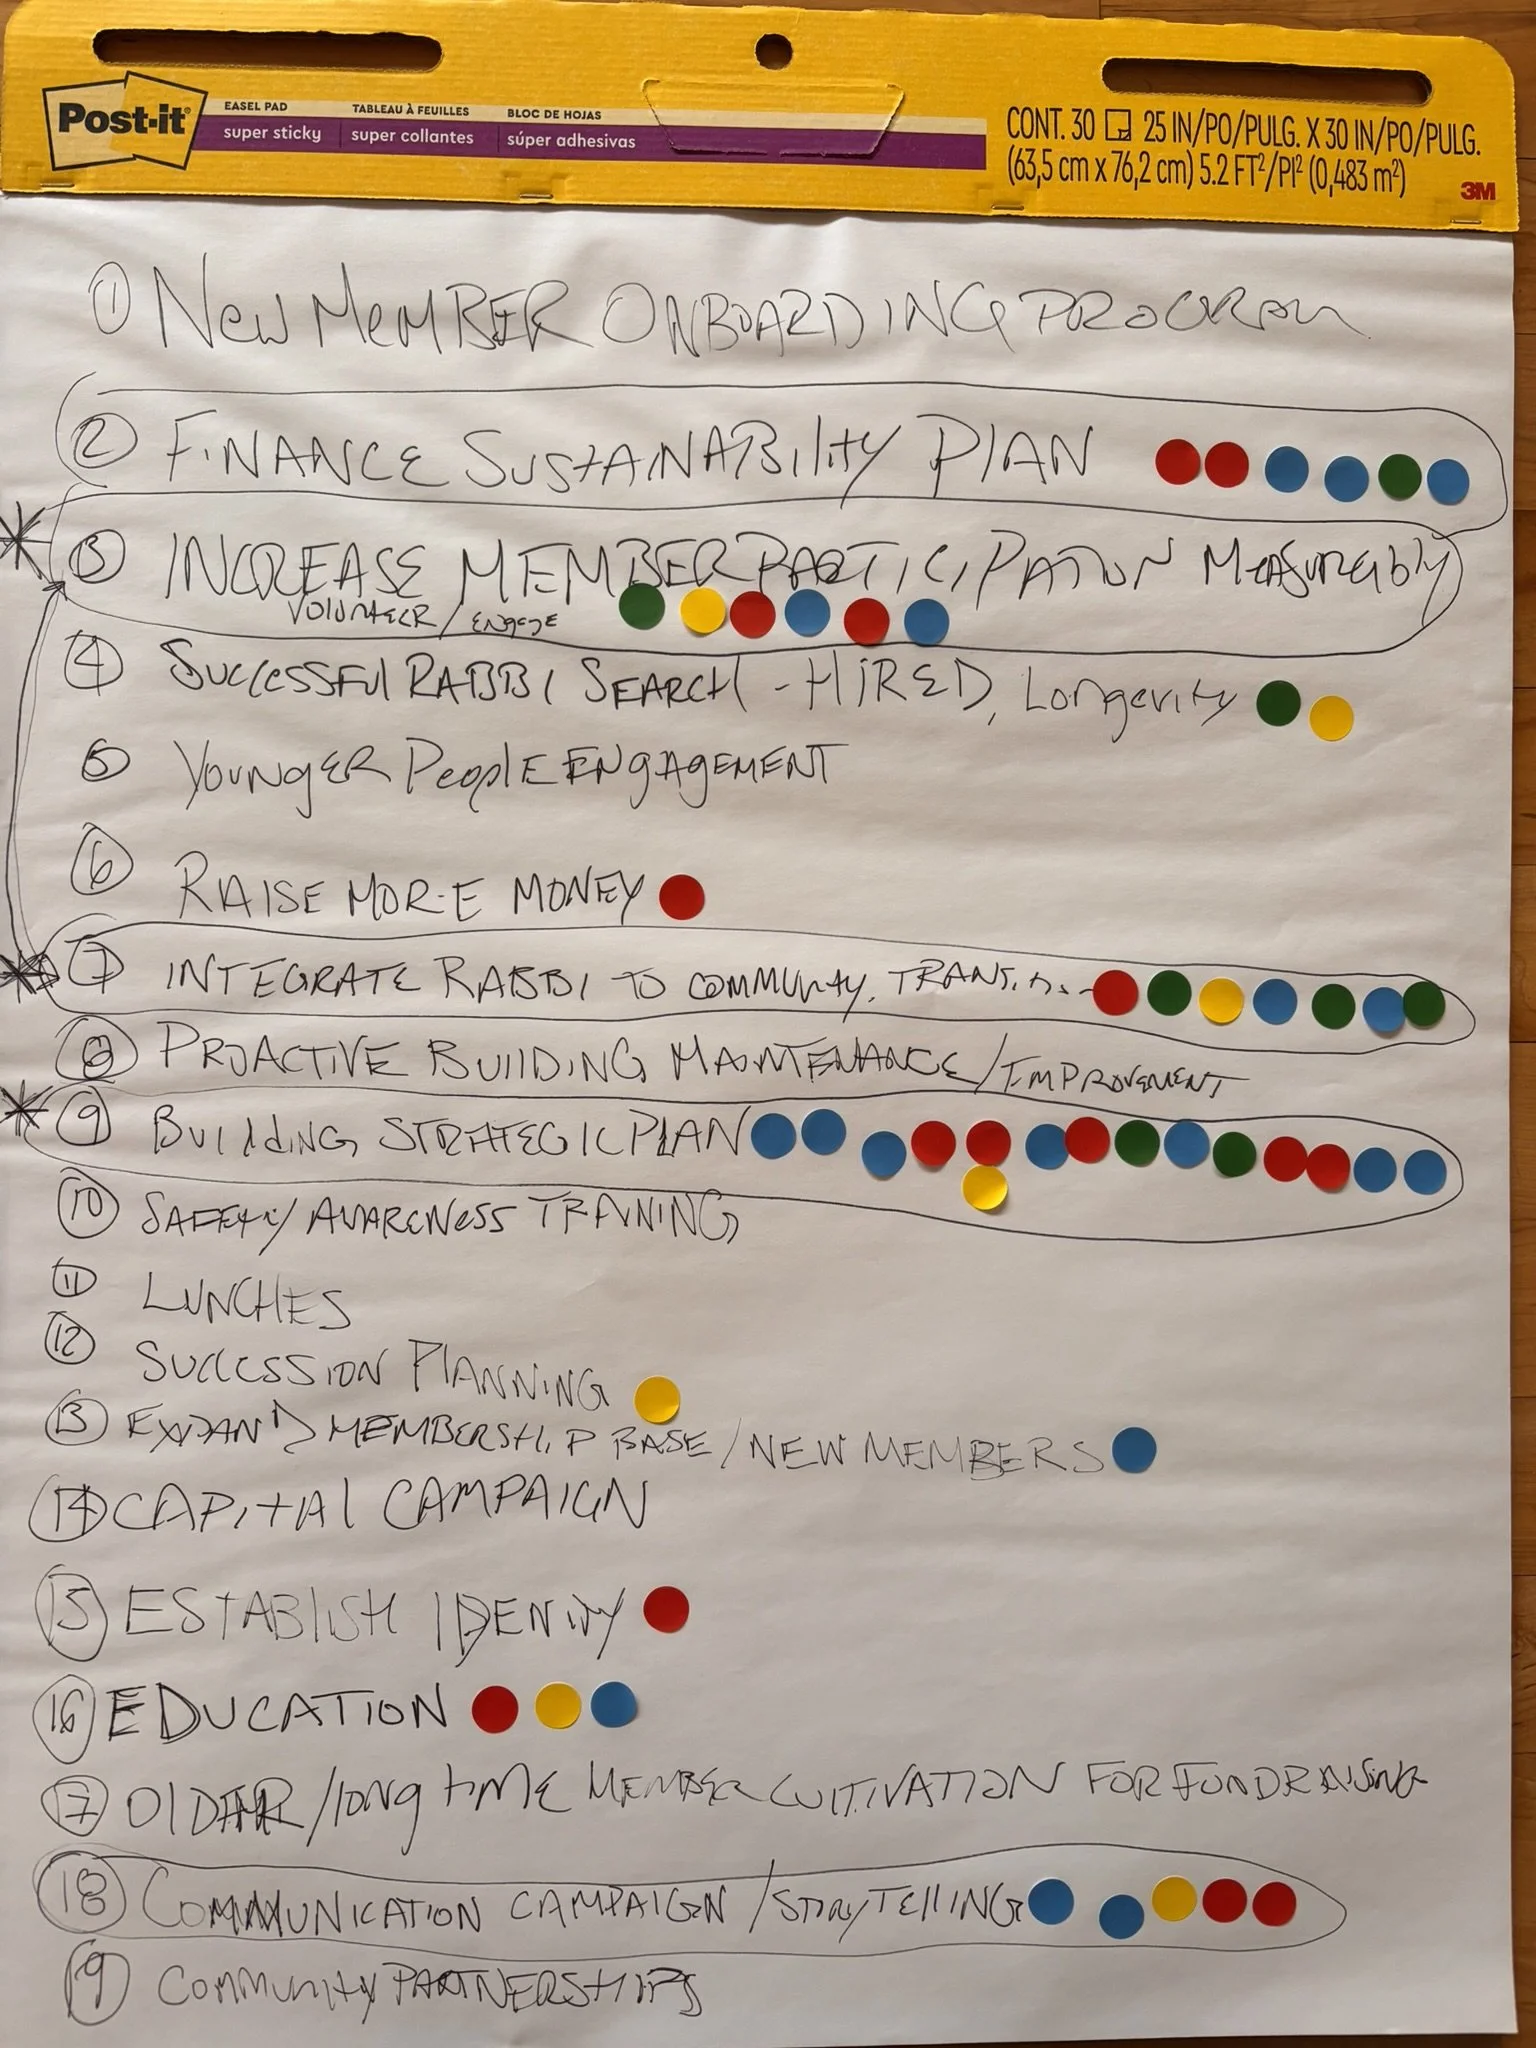 Post-it®
EASEL PAD TABLEAU À FEUILLES BLOC DE HOJAS
super sticky super collantes súper adhesivas
CONT. 30 25 IN/PO/PULG. X 30 IN/PO/PULG.
(63,5 cm x 76,2 cm) 5.2 FT²/PI² (0,483 m²)
3M
① NEW MEMBER ONBOARDING PROGRAM
② FINANCE SUSTAINABILITY PLAN
③ INCREASE MEMBER PARTICIPATION MEASURABLY
VOLUNTEER / ENGAGE
④ SUCCESSFUL RABBI SEARCH - HIRED, Longevity
⑤ YOUNGER PEOPLE ENGAGEMENT
⑥ RAISE MORE MONEY
⑦ INTEGRATE RABBI TO COMMUNITY.
⑧ PROACTIVE BUILDING MAINTENANCE/IMPROVEMENT
⑨ BUILDING STRATEGIC PLAN
⑩ SAFETY/AWARENESS TRAINING
⑪ LUNCHES
⑫ SUCCESSION PLANNING
⑬ EXPAND MEMBERSHIP BASE/NEW MEMBERS
⑭ CAPITAL CAMPAIGN
⑮ ESTABLISH IDENITY
⑯ EDUCATION
⑰ OLDER/long time MEMBER CULTIVATION FOR FUNDRAISING
⑱ COMMUNICATION CAMPAIGN/STORYTELLING
⑲ COMMUNITY PARTNERSHIPS